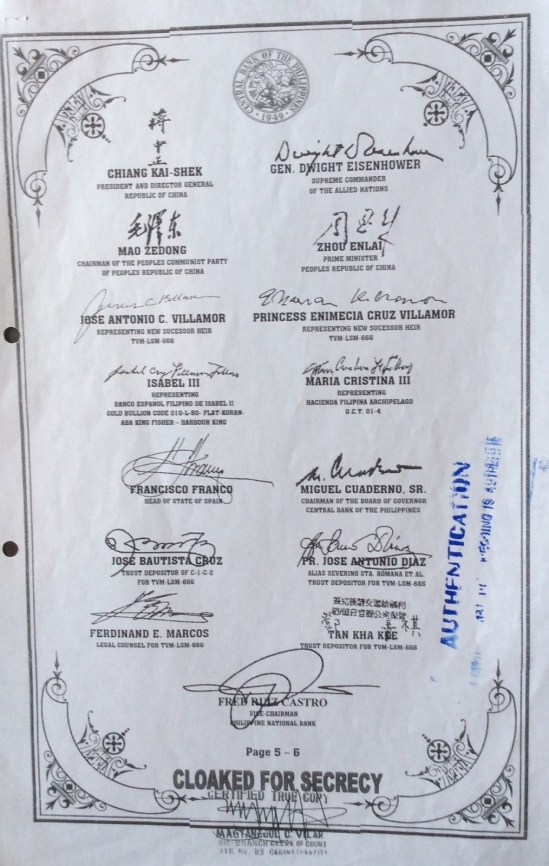 CENTRAL BANK OF THE PHILIPPINES
1949
蔣中正
CHIANG KAI-SHEK
PRESIDENT AND DIRECTOR GENERAL
REPUBLIC OF CHINA
Dwight D Eisenhower
GEN. DWIGHT EISENHOWER
SUPREME COMMANDER
OF THE ALLIED NATIONS
毛澤东
MAO ZEDONG
CHAIRMAN OF THE PEOPLES COMMUNIST PARTY
OF PEOPLES REPUBLIC OF CHINA
周恩来
ZHOU ENLAI
PRIME MINISTER
PEOPLES REPUBLIC OF CHINA
JOSE ANTONIO C. VILLAMOR
REPRESENTING NEW SUCESSOR HEIR
TVM-LSM-666
PRINCESS ENIMECIA CRUZ VILLAMOR
REPRESENTING NEW SUCESSOR HEIR
TVM-LSM-666
ISABEL III
REPRESENTING
BANCO ESPANOL FILIPINO DE ISABEL II
GOLD BULLION CODE 010-L-BO- FLAT-KURAN-
ABA KING FISHER - HARBOUR KING
MARIA CRISTINA III
REPRESENTING
HACIENDA FILIPINA ARCHIPELAGO
O.C.T. 01-4
FRANCISCO FRANCO
HEAD OF STATE OF SPAIN
M. Cuaderno
MIGUEL CUADERNO, SR.
CHAIRMAN OF THE BOARD OF GOVERNOR
CENTRAL BANK OF THE PHILIPPINES
JOSE BAUTISTA CRUZ
TRUST DEPOSITOR OF C-1-C-2
FOR TVM-LSM-666
PR. JOSE ANTONIO DIAZ
ALIAS SEVERINO STA. ROMANA ET AL.
TRUST DEPOSITOR FOR TVM-LSM-666
FERDINAND E. MARCOS
LEGAL COUNSEL FOR TVM-LSM-666
TAN KHA KEE
TRUST DEPOSITOR FOR TVM-LSM-666
FRED RUIZ CASTRO
VICE-CHAIRMAN
PHILIPPINE NATIONAL BANK
AUTHENTICATION
Page 5 - 6
CLOAKED FOR SECRECY
CERTIFIED TRUE COPY
MAGYANGGOL C. VILAR
BRANCH CLERK OF COURT